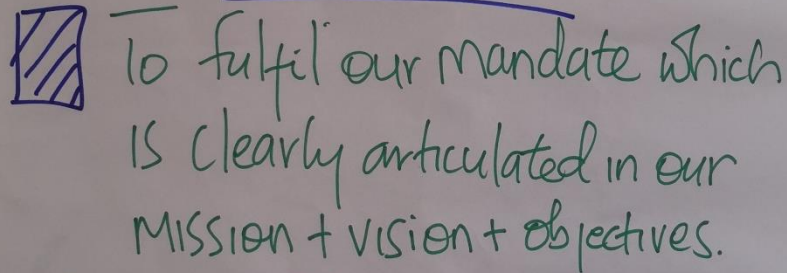 To fulfil our mandate which
is clearly articulated in our
Mission + vision + objectives.